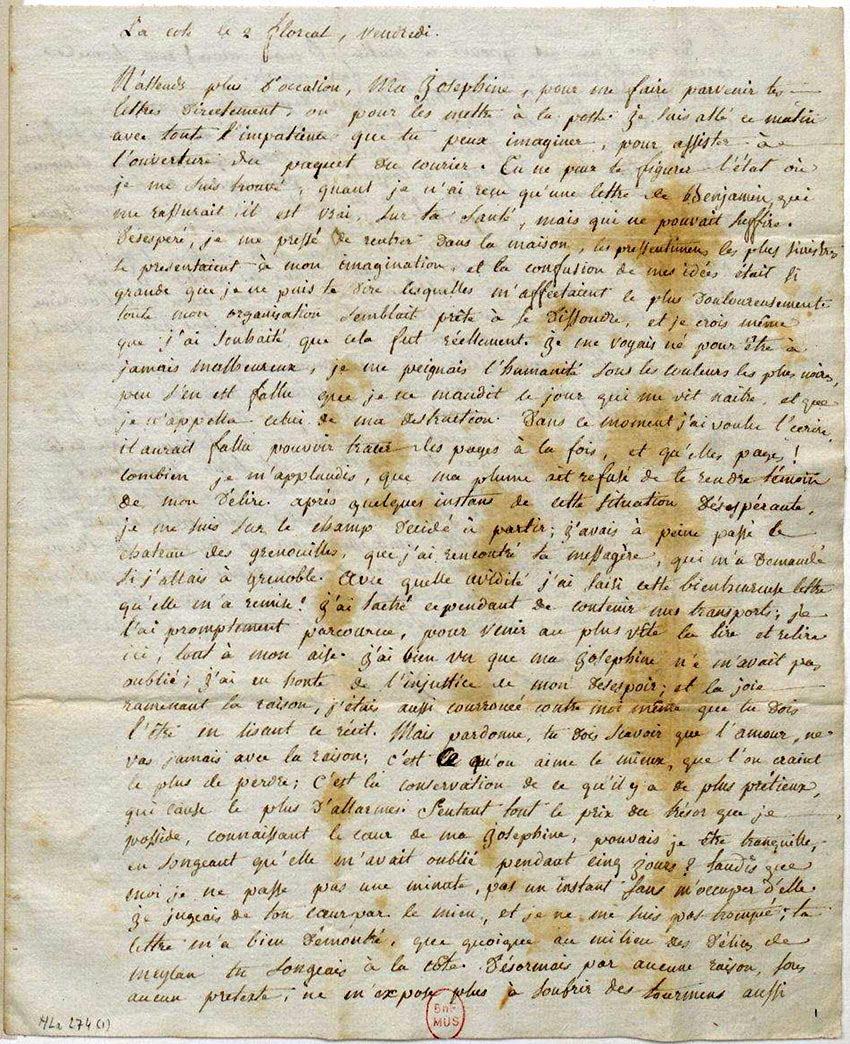 La cote le 2 floreal, vendredi.
N'attends plus d'occasion, Ma Josephine, pour me faire parvenir tes
lettres directement, ou pour les mettre à la poste. Je suis allé ce matin
avec toute l'impatience que tu peux imaginer, pour assister à
l'ouverture du paquet du courier. Tu ne peux te figurer l'état où
je me suis trouvé, quant je n'ai reçu qu'une lettre de Benjamin, qui
me rassurait il est vrai, sur ta santé, mais qui ne pouvait suffire.
Desesperé, je me pressé de rentrer dans la maison, les pressentimens les plus sinistres
se presentaient à mon imagination, et la confusion de mes idées était si
grande que je ne puis te dire lesquelles m'affectaient le plus douloureusement
toute mon organisation semblait prête à se dissoudre, et je crois même
que j'ai souhaité que cela fut réellement. Je me voyais né pour être à
jamais malheureux, je me peignais l'humanité sous les couleurs les plus noires,
peu s'en est fallu que je ne maudit le jour qui me vit naitre, et que
je n'appella celui de ma destruction. Dans ce moment j'ai voulu t'ecrire,
il aurait fallu pouvoir tracer les pages à la fois, et qu'elles pages!
combien je m'applaudis, que ma plume ait refusé de te rendre témoin
de mon délire. après quelques instans de cette situation désespérante,
je me suis sur le champ décidé à partir; j'avais à peine passé le
chateau des grenouilles, que j'ai rencontré ta messagère, qui m'a demandé
si j'allais à grenoble. Avec quelle avidité j'ai saisi cette bienheureuse lettre
qu'elle m'a remise! J'ai taché cependant de contenir mes transports; je
l'ai promptement parcourue, pour venir au plus vîte la lire et relire
ici, tout à mon aise. J'ai bien vu que ma Josephine ne m'avait pas
oublié; j'ai eu honte de l'injustice de mon desespoir; et la joie
ramenant la raison, j'étais aussi courroucé contre moi même que tu dois
l'être en lisant ce récit. Mais pardonne, tu dois scavoir que l'amour, ne
vas jamais avec la raison; c'est ce qu'on aime le mieux, que l'on craint
le plus de perdre; c'est la conservation de ce qu'il y a de plus prétieux,
qui cause le plus d'allarmes. Sentant tout le prix du trésor que je
possède, connaissant le cœur de ma Josephine, pouvais je être tranquille,
en songeant qu'elle m'avait oublié pendant cinq jours? tandis que
moi je ne passe pas une minute, pas un instant sans m'occuper d'elle.
Je jugeais de ton cœur par le mien, et je ne me suis pas trompé; ta
lettre m'a bien démontré, que quoique au milieu des délices de
meylan tu songeais à la cote. Désormais par aucune raison, sous
aucun pretexte, ne m'expose plus à soufrir des tourmens aussi
MLa 274 (1)
BnF
MUS
1